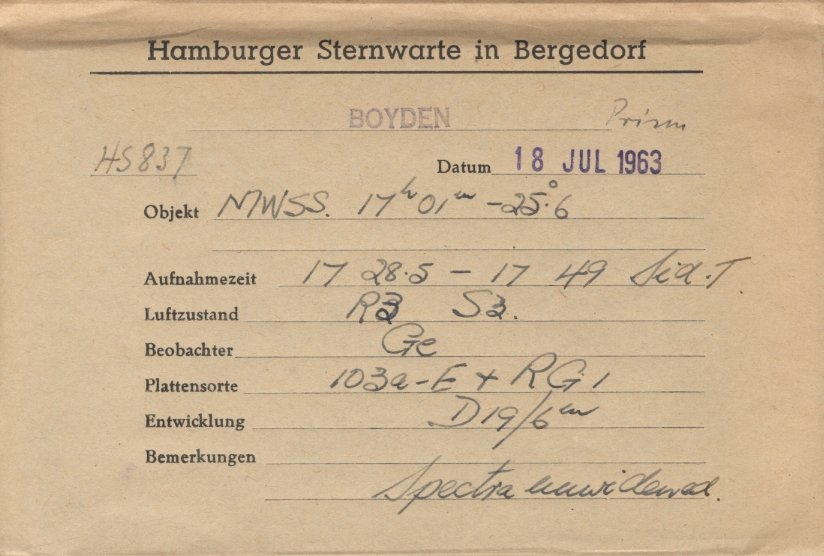 Hamburger Sternwarte in Bergedorf
BOYDEN Prism
HS 837
Datum 18 JUL 1963
Objekt MWSS. 17h 01m -25°.6
Aufnahmezeit 17 28.5 – 17 49 Sid. T
Luftzustand R3 S3.
Beobachter Ge
Plattensorte 103a-E + RG1
Entwicklung D19/6m
Bemerkungen
Spectra unwidened.